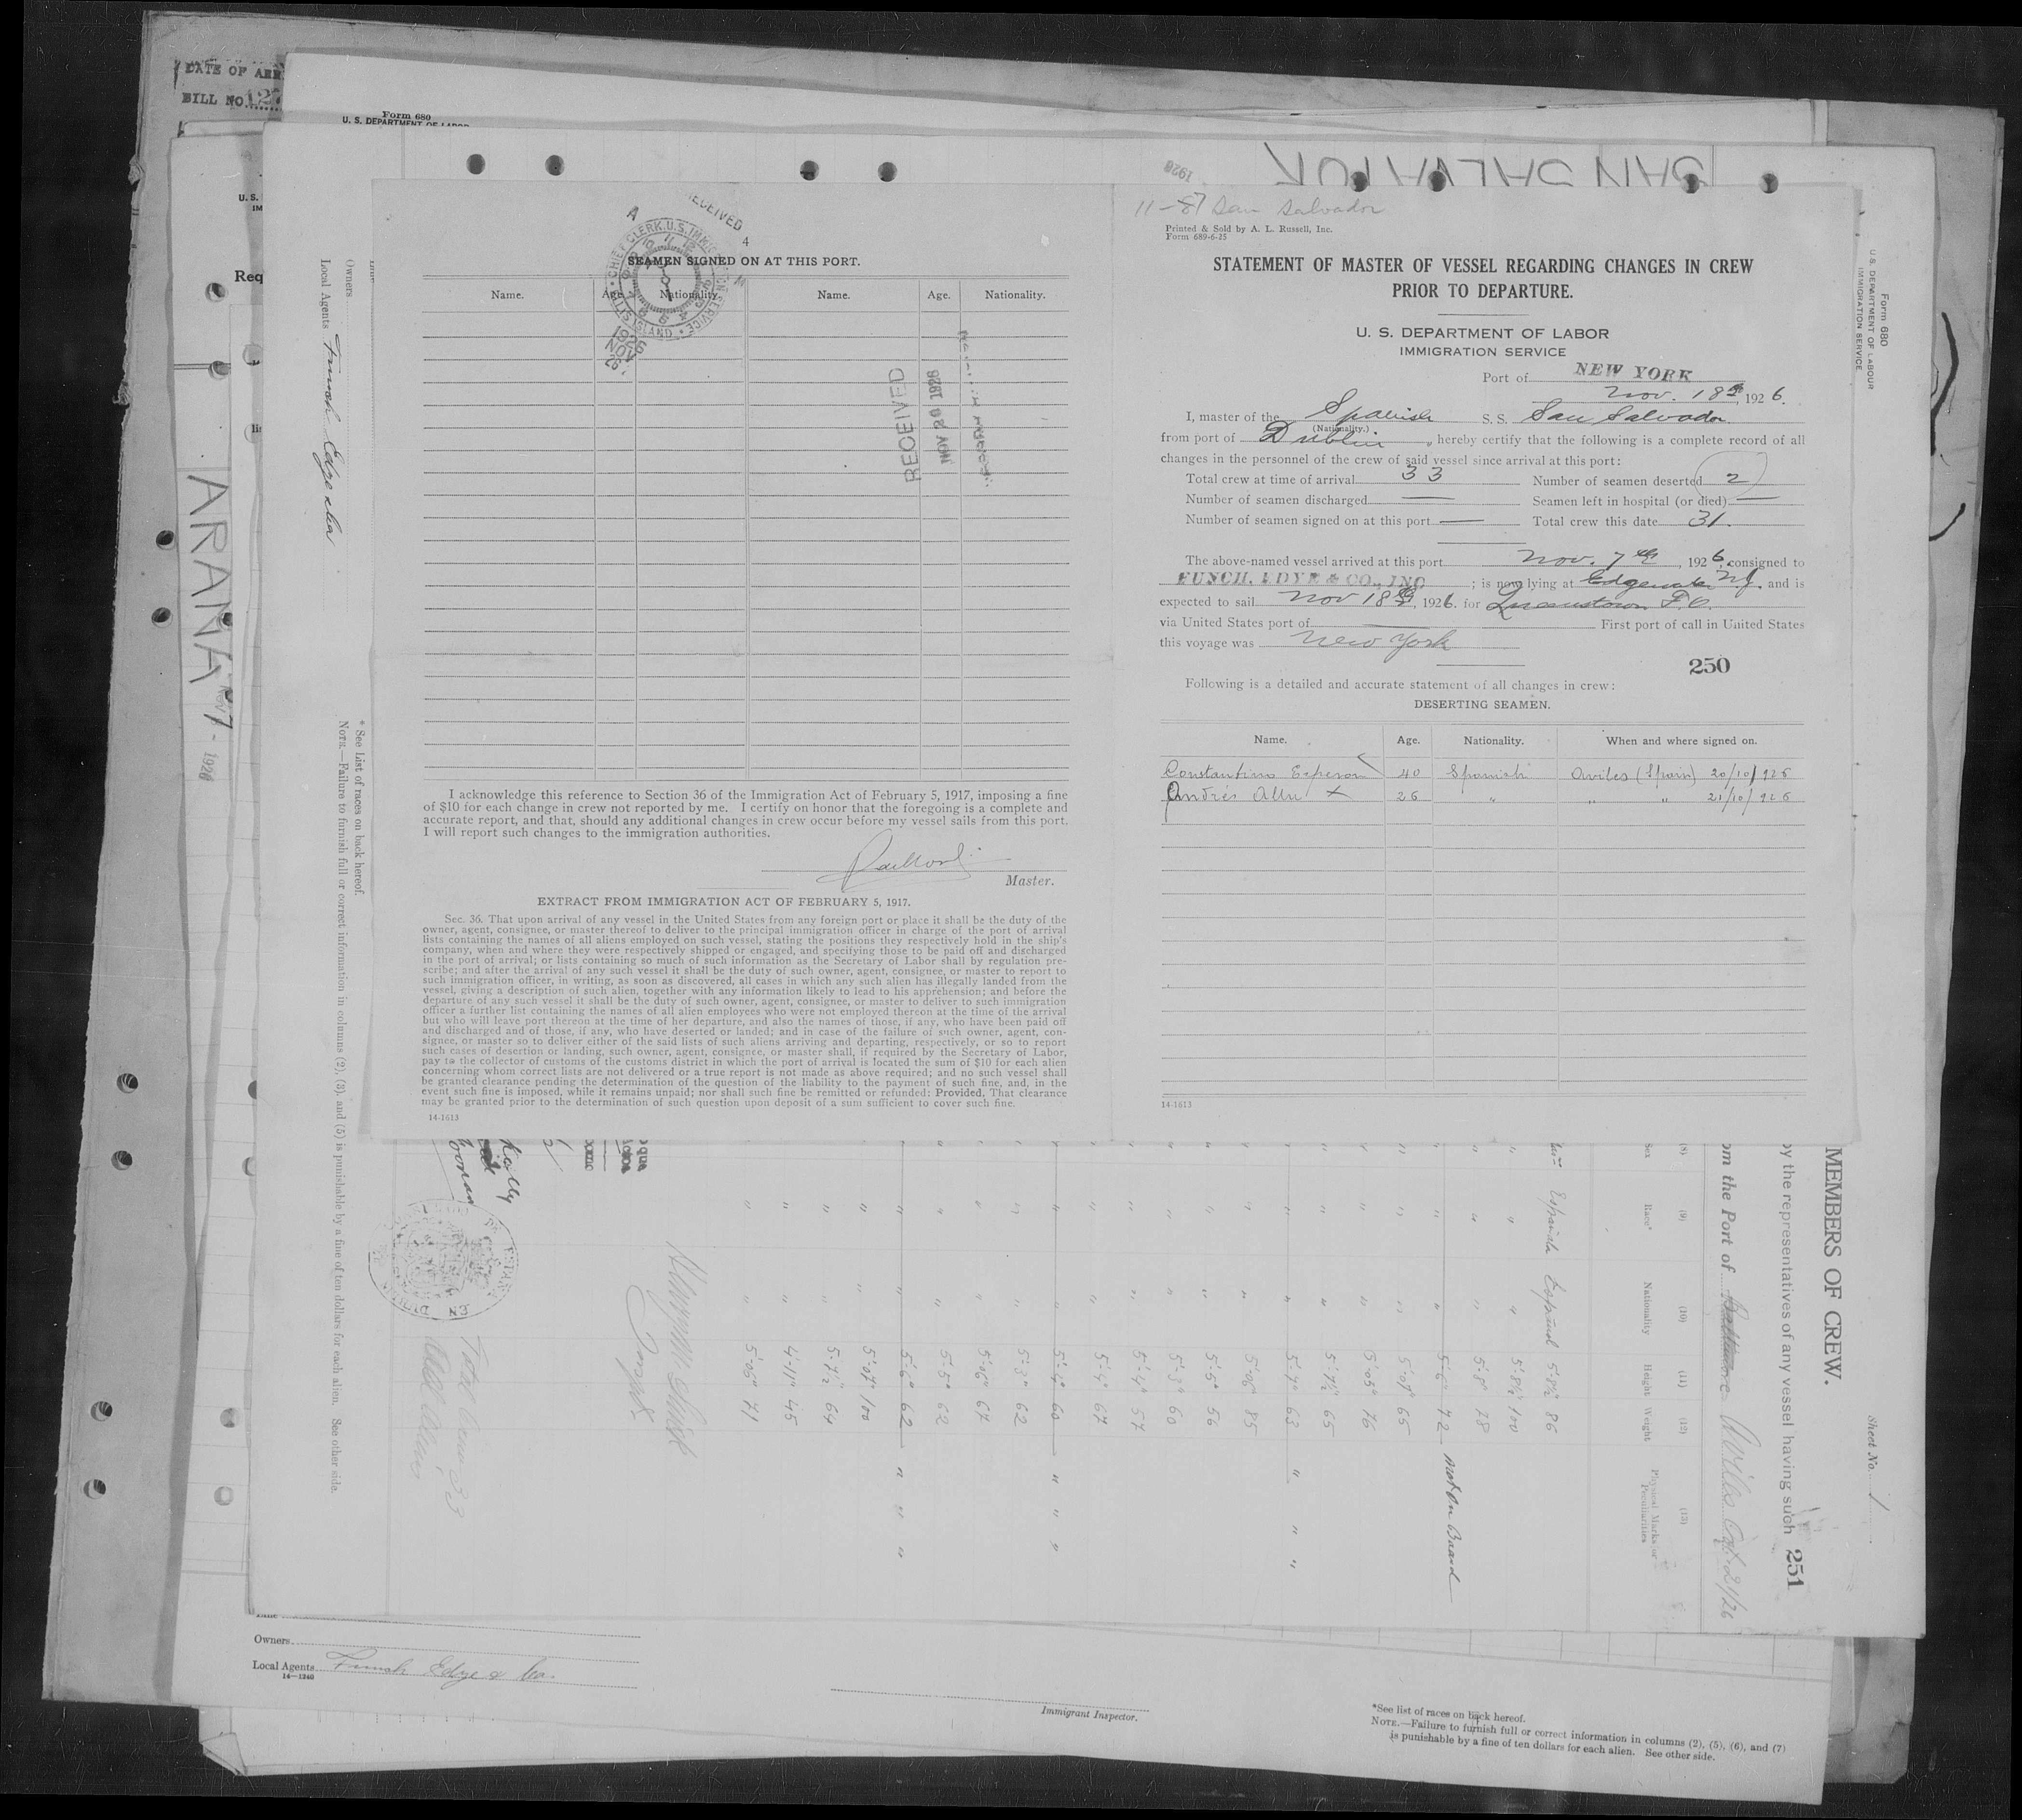 DATE OF ARR
BILL NO. 127
Form 680
U. S. DEPARTMENT OF LABOR
U. S.
IM
Req
ARANA
7 - 1926
Owners
Local Agents
* See List of races on back hereof.
NOTE.—Failure to furnish full or correct information in columns (2), (3), and (5) is punishable by a fine of ten dollars for each alien. See other side.
RECEIVED
4
CHIEF CLERK, U.S. IMMIGRATION SERVICE
ELLIS ISLAND
1926
NOV
SEAMEN SIGNED ON AT THIS PORT.
Name. Age. Nationality. Name. Age. Nationality.
RECEIVED
NOV 20 1926
I acknowledge this reference to Section 36 of the Immigration Act of February 5, 1917, imposing a fine
of $10 for each change in crew not reported by me. I certify on honor that the foregoing is a complete and
accurate report, and that, should any additional changes in crew occur before my vessel sails from this port.
I will report such changes to the immigration authorities.
Master.
EXTRACT FROM IMMIGRATION ACT OF FEBRUARY 5, 1917.
Sec. 36. That upon arrival of any vessel in the United States from any foreign port or place it shall be the duty of the
owner, agent, consignee, or master thereof to deliver to the principal immigration officer in charge of the port of arrival
lists containing the names of all aliens employed on such vessel, stating the positions they respectively hold in the ship's
company, when and where they were respectively shipped or engaged, and specifying those to be paid off and discharged
in the port of arrival; or lists containing so much of such information as the Secretary of Labor shall by regulation pre-
scribe; and after the arrival of any such vessel it shall be the duty of such owner, agent, consignee, or master to report to
such immigration officer, in writing, as soon as discovered, all cases in which any such alien has illegally landed from the
vessel, giving a description of such alien, together with any information likely to lead to his apprehension; and before the
departure of any such vessel it shall be the duty of such owner, agent, consignee, or master to deliver to such immigration
officer a further list containing the names of all alien employees who were not employed thereon at the time of the arrival
but who will leave port thereon at the time of her departure, and also the names of those, if any, who have been paid off
and discharged and of those, if any, who have deserted or landed; and in case of the failure of such owner, agent, con-
signee, or master so to deliver either of the said lists of such aliens arriving and departing, respectively, or so to report
such cases of desertion or landing, such owner, agent, consignee, or master shall, if required by the Secretary of Labor,
pay to the collector of customs of the customs district in which the port of arrival is located the sum of $10 for each alien
concerning whom correct lists are not delivered or a true report is not made as above required; and no such vessel shall
be granted clearance pending the determination of the question of the liability to the payment of such fine, and, in the
event such fine is imposed, while it remains unpaid; nor shall such fine be remitted or refunded: Provided, That clearance
may be granted prior to the determination of such question upon deposit of a sum sufficient to cover such fine.
14-1613
SAN SALVADOR
1926
11-87 San Salvador
Printed & Sold by A. L. Russell, Inc.
Form 689-6-25
STATEMENT OF MASTER OF VESSEL REGARDING CHANGES IN CREW
PRIOR TO DEPARTURE.
U. S. DEPARTMENT OF LABOR
IMMIGRATION SERVICE
Port of NEW YORK
Nov. 18th, 1926.
I, master of the Spanish S.S. San Salvador
(Nationality.)
from port of Dublin, hereby certify that the following is a complete record of all
changes in the personnel of the crew of said vessel since arrival at this port:
Total crew at time of arrival 33 Number of seamen deserted 2
Number of seamen discharged — Seamen left in hospital (or died) —
Number of seamen signed on at this port — Total crew this date 31.
The above-named vessel arrived at this port Nov. 7th, 1926, consigned to
FUNCH, EDYE & CO., INC ; is now lying at Edgewater NJ. and is
expected to sail Nov 18th, 1926. for Queenstown F.O.
via United States port of — First port of call in United States
this voyage was New York
250
Following is a detailed and accurate statement of all changes in crew:
DESERTING SEAMEN.
Name. Age. Nationality. When and where signed on.
Constantino 40 Spanish Aviles (Spain) 20/10/926
Andrés 26 " " " 21/10/926
14-1613
Form 680
U. S. DEPARTMENT OF LABOUR
IMMIGRATION SERVICE
Sheet No. 1
MEMBERS OF CREW.
by the representatives of any vessel having such 251
om the Port of Aviles Oct 21/26
(8) (9) (10) (11) (12) (13)
Sex Race* Nationality Height Weight Physical Marks or Peculiarities
Española Español 5'8½ 86
5'8½ 100
5'8" 78
5'6" 72 not on Board
5'07" 65
5'05" 76
5'7½ 65
5'7" 63 " " "
5'06" 85
5'5" 56
5'3" 60
5'4" 57
5'4" 67
5'4" 60 " " "
5'3" 62
5'06" 67
5'5" 62
5'6" 62 " " "
5'07" 100
5'7½ 64
4'11" 45
5'05" 71
Total Crew 33
All Aliens
Owners
Local Agents Funch Edye & Co.
14—1240
Immigrant Inspector.
*See list of races on back hereof.
NOTE.—Failure to furnish full or correct information in columns (2), (5), (6), and (7)
is punishable by a fine of ten dollars for each alien. See other side.